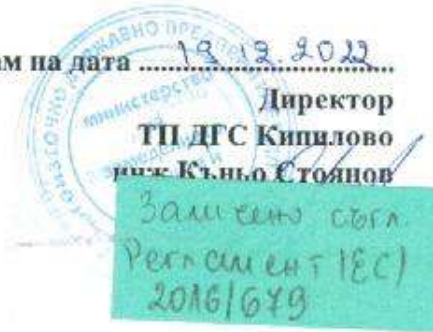 ам на дата 19.12.2022
Директор
ТП ДГС Кипилово
инж. Къньо Стоянов
Заличено съгл.
Регламент (ЕС)
2016/679